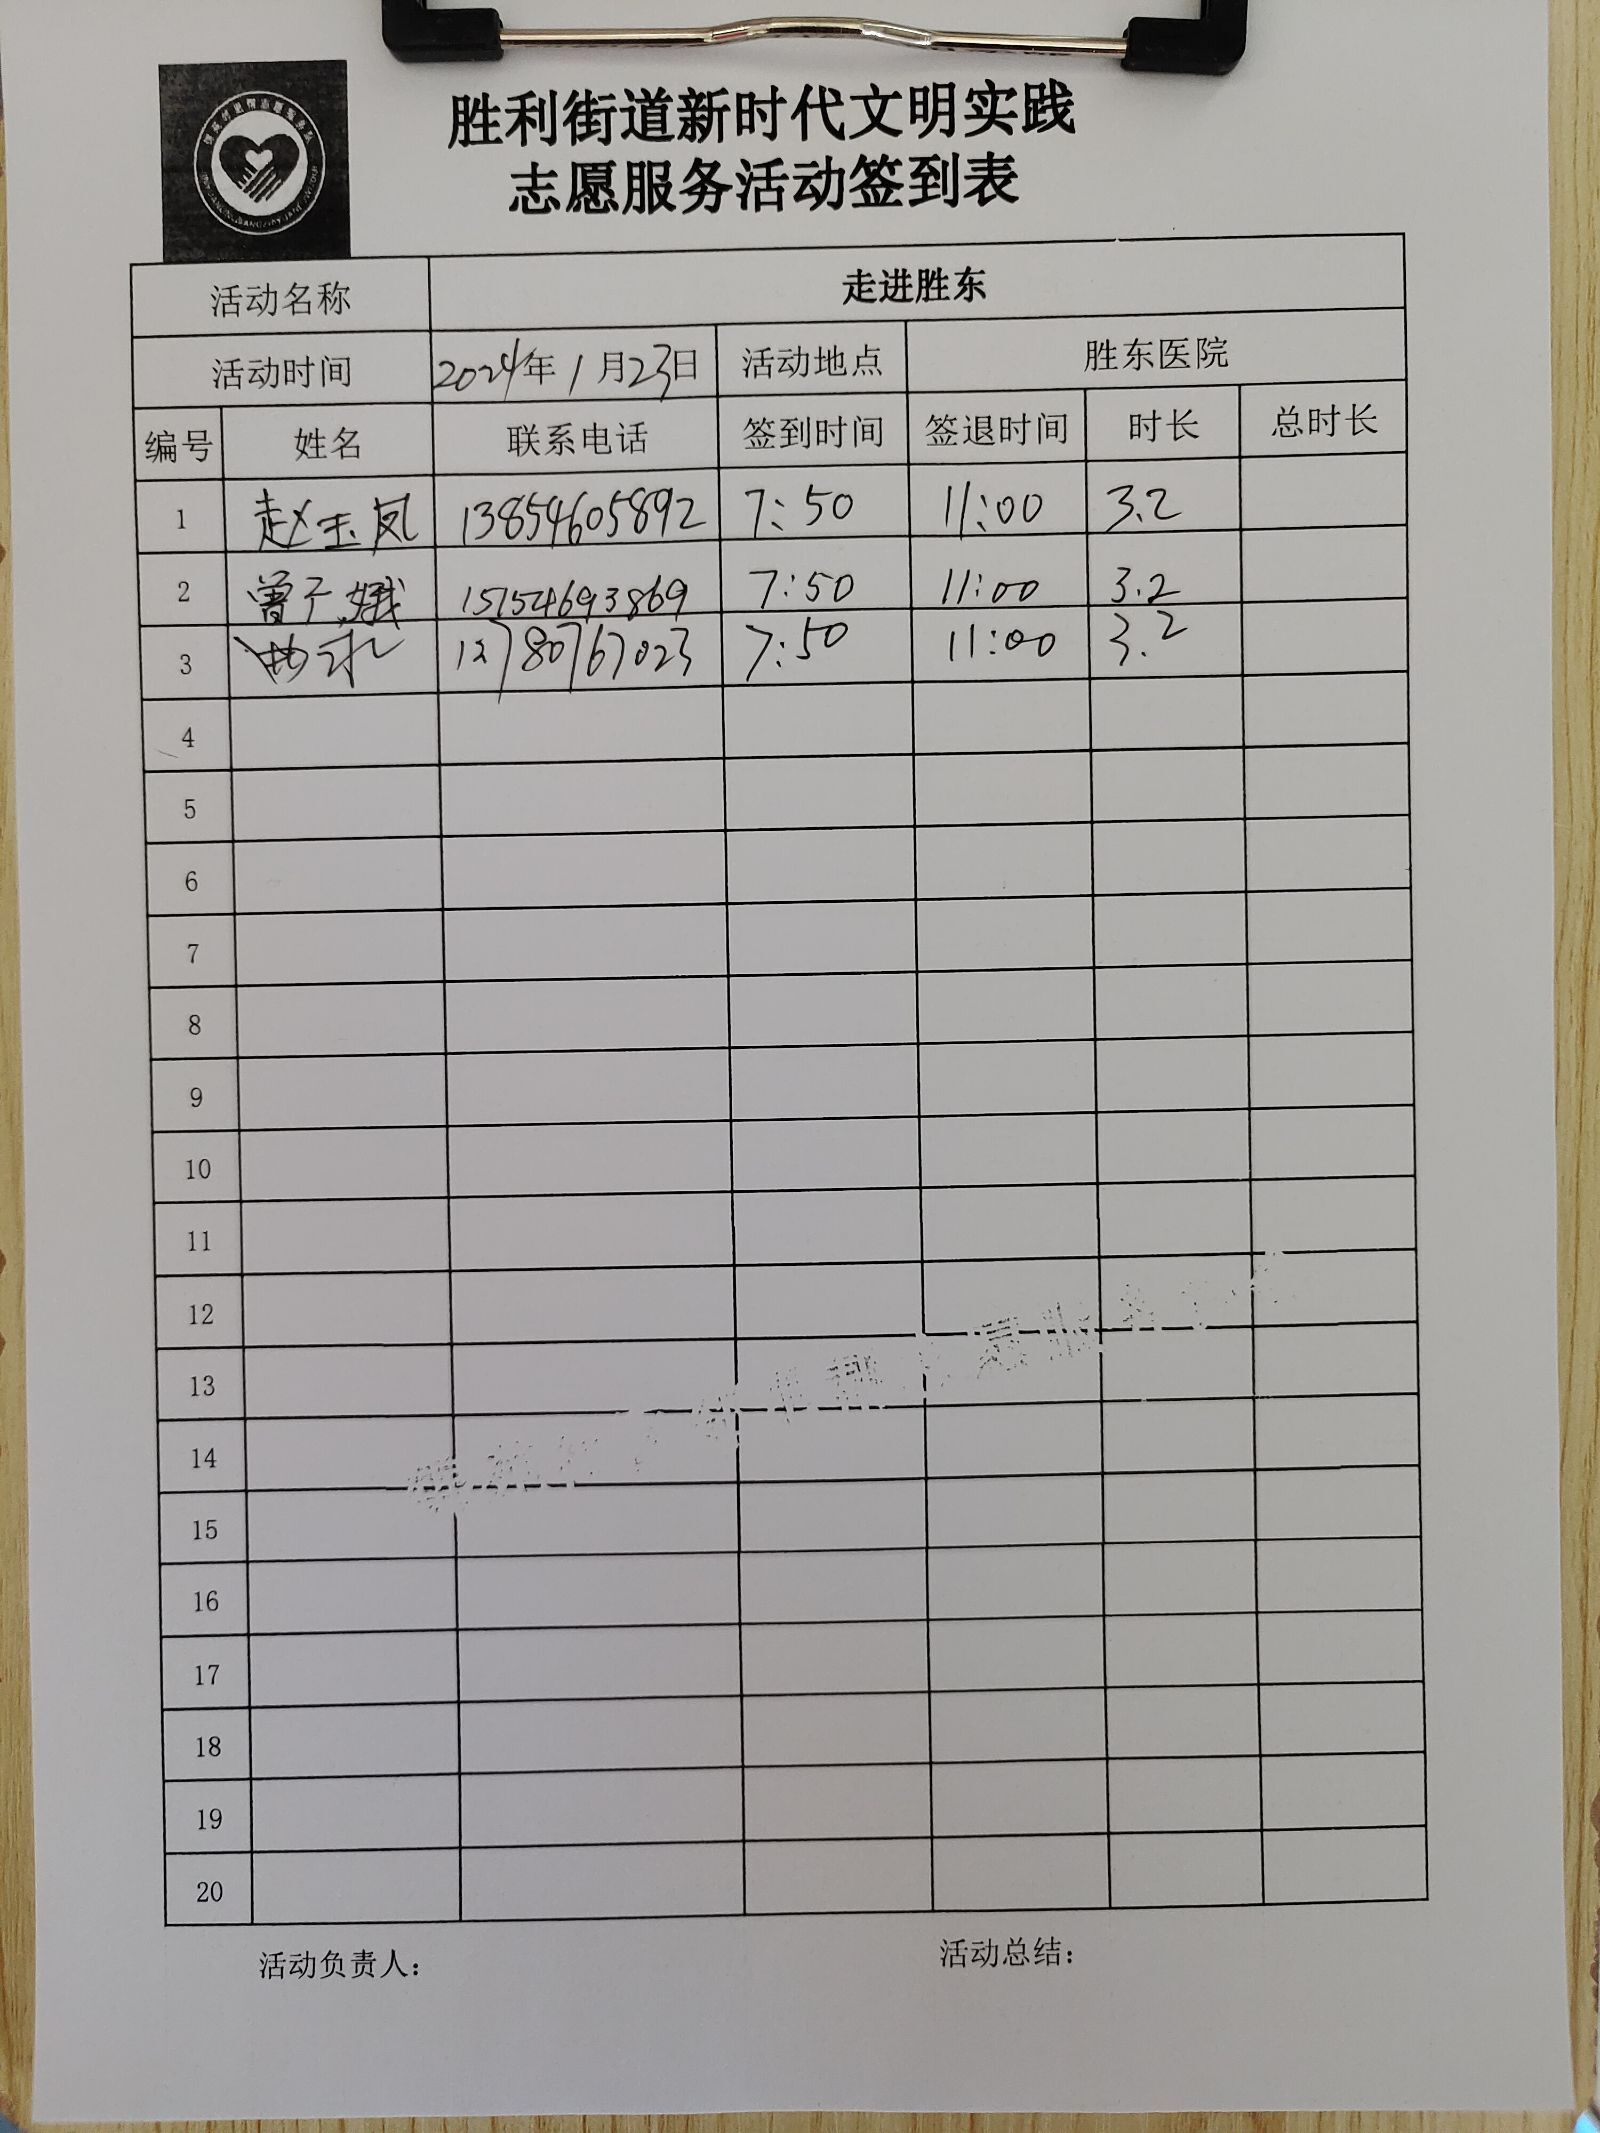 胜利街道新时代文明实践
志愿服务活动签到表
活动名称 走进胜东
活动时间 2024年1月23日 活动地点 胜东医院
编号 姓名 联系电话 签到时间 签退时间 时长 总时长
1 赵玉凤 13854605892 7:50 11:00 3.2
2 曾子娥 15154693869 7:50 11:00 3.2
3 7:50 11:00 3.2
4
5
6
7
8
9
10
11
12
13
14
15
16
17
18
19
20
活动负责人: 活动总结: